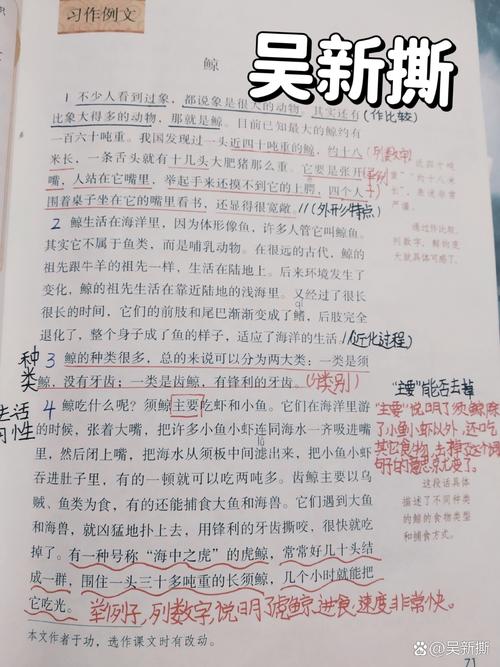 习作例文
吴新撕
鲸
1 不少人看到过象，都说象是很大的动物。其实还有(作比较)
比象大得多的动物，那就是鲸。目前已知最大的鲸约有
一百六十吨重。我国发现过一头近四十吨重的鲸，约十八(列数字)
米长，一条舌头就有十几头大肥猪那么重。它要是张开(举例子)
嘴，人站在它嘴里，举起手来还摸不到它的上腭，四个人
围着桌子坐在它的嘴里看书，还显得很宽敞。//(外形特点)
近四十吨
重”“约十八米
长”，表述非常
严谨。
通过作比较、
列数字，鲸的庞
大就具体可感了。
2 鲸生活在海洋里，因为体形像鱼，许多人管它叫鲸鱼。
其实它不属于鱼类，而是哺乳动物。在很远的古代，鲸的
祖先跟牛羊的祖先一样，生活在陆地上。后来环境发生了
变化，鲸的祖先生活在靠近陆地的浅海里。又经过了很长
很长的时间，它们的前肢和尾巴渐渐变成了鳍，后肢完全
qí
退化了，整个身子成了鱼的样子，适应了海洋的生活。//(进化过程)
种类
3 鲸的种类很多，总的来说可以分为两大类：一类是须
鲸，没有牙齿；一类是齿鲸，有锋利的牙齿。//(类别)
生活习性
4 鲸吃什么呢？须鲸主要吃虾和小鱼。它们在海洋里游
的时候，张着大嘴，把许多小鱼小虾连同海水一齐吸进嘴
里，然后闭上嘴，把海水从须板中间滤出来，把小鱼小虾
吞进肚子里，有的一顿就可以吃两吨多。齿鲸主要以乌
贼、鱼类为食，有的还能捕食大鱼和海兽。它们遇到大鱼
和海兽，就凶猛地扑上去，用锋利的牙齿撕咬，很快就吃
掉了。有一种号称“海中之虎”的虎鲸，常常好几十头结
成一群，围住一头三十多吨重的长须鲸，几个小时就能把
它吃光。举例子，列数字，说明了虎鲸进食速度非常快。
“主要”能否去掉
“主要”说明了须鲸除
了小鱼小虾以外，还吃
其它食物，去掉了这个词
句子的意思就变了。
这段话具体
描述了不同种类
的鲸的食物类型
和捕食方式。
本文作者于功，选作课文时有改动。
71
百度@吴新撕